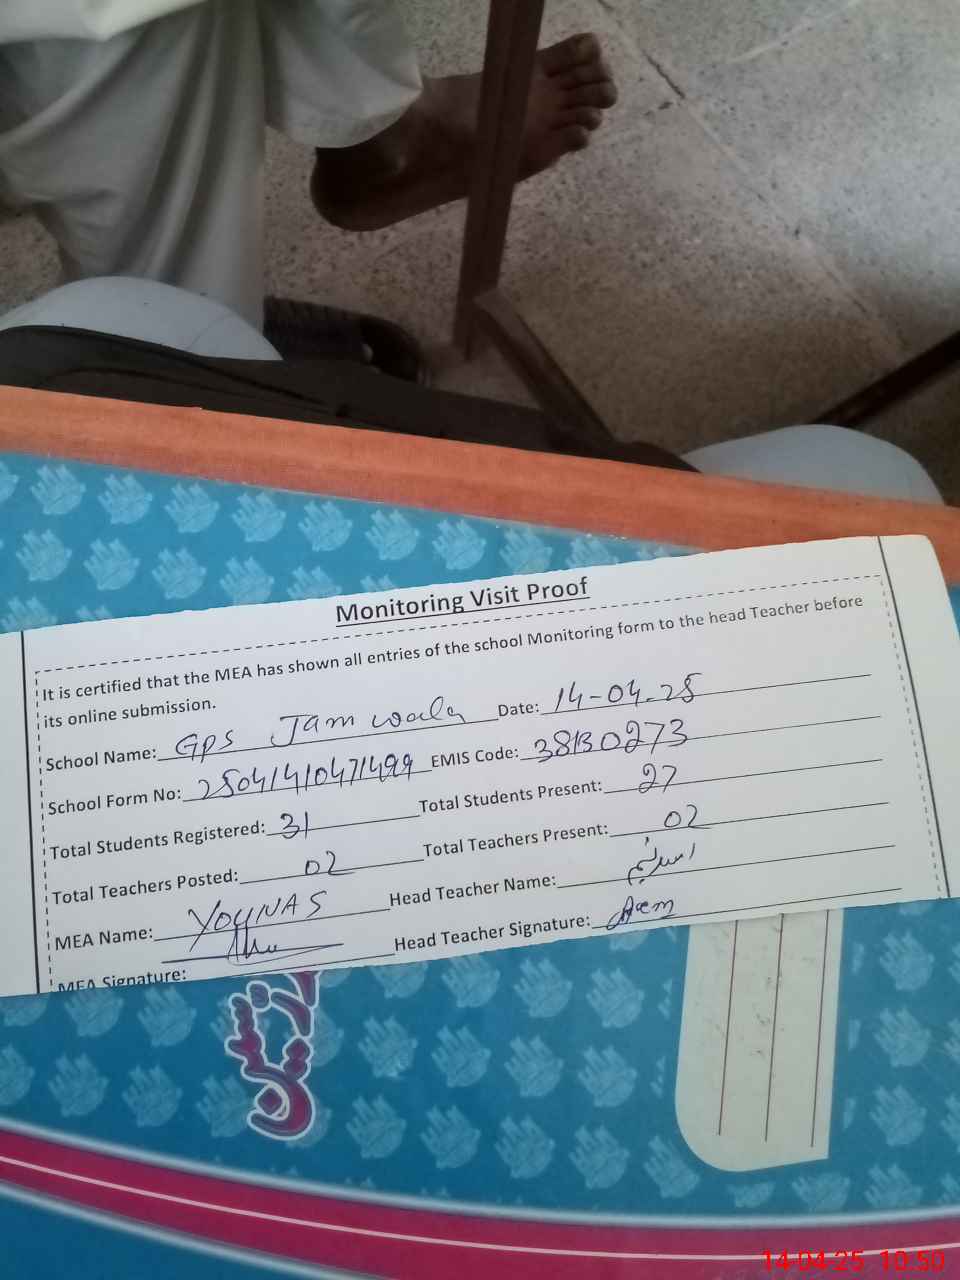 Monitoring Visit Proof
It is certified that the MEA has shown all entries of the school Monitoring form to the head Teacher before
its online submission.
School Name: GPS Jamwala Date: 14-04-25
School Form No: 25041410471499 EMIS Code: 38130273
Total Students Registered: 31 Total Students Present: 27
Total Teachers Posted: 02 Total Teachers Present: 02
MEA Name: YOUNAS Head Teacher Name:
MEA Signature: Head Teacher Signature:
14-04-25 10:50